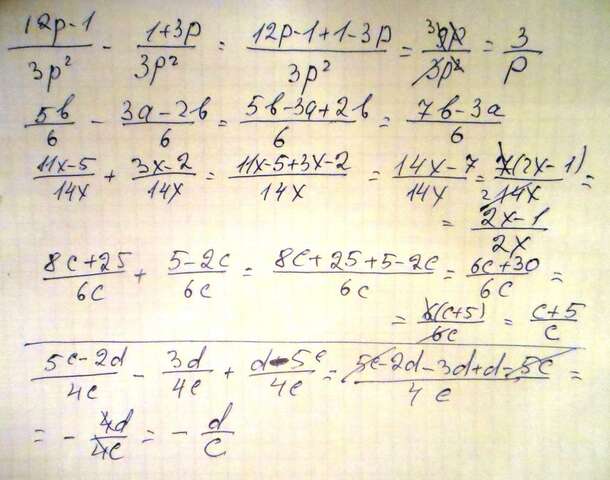 (12p-1)/(3p²) - (1+3p)/(3p²) = (12p-1+1-3p)/(3p²) = 3 (9p)/(3p²) = 3/p
5b/6 - (3a-2b)/6 = (5b-3a+2b)/6 = (7b-3a)/6
(11x-5)/(14x) + (3x-2)/(14x) = (11x-5+3x-2)/(14x) = (14x-7)/(14x) = 7(2x-1)/(2 14x) =
= (2x-1)/(2x)
(8c+25)/(6c) + (5-2c)/(6c) = (8c+25+5-2c)/(6c) = (6c+30)/(6c) =
= 6(c+5)/(6c) = (c+5)/c
(5c-2d)/(4c) - 3d/(4c) + (d-5c)/(4c) = (5c-2d-3d+d-5c)/(4c) =
= - 4d/(4c) = - d/c